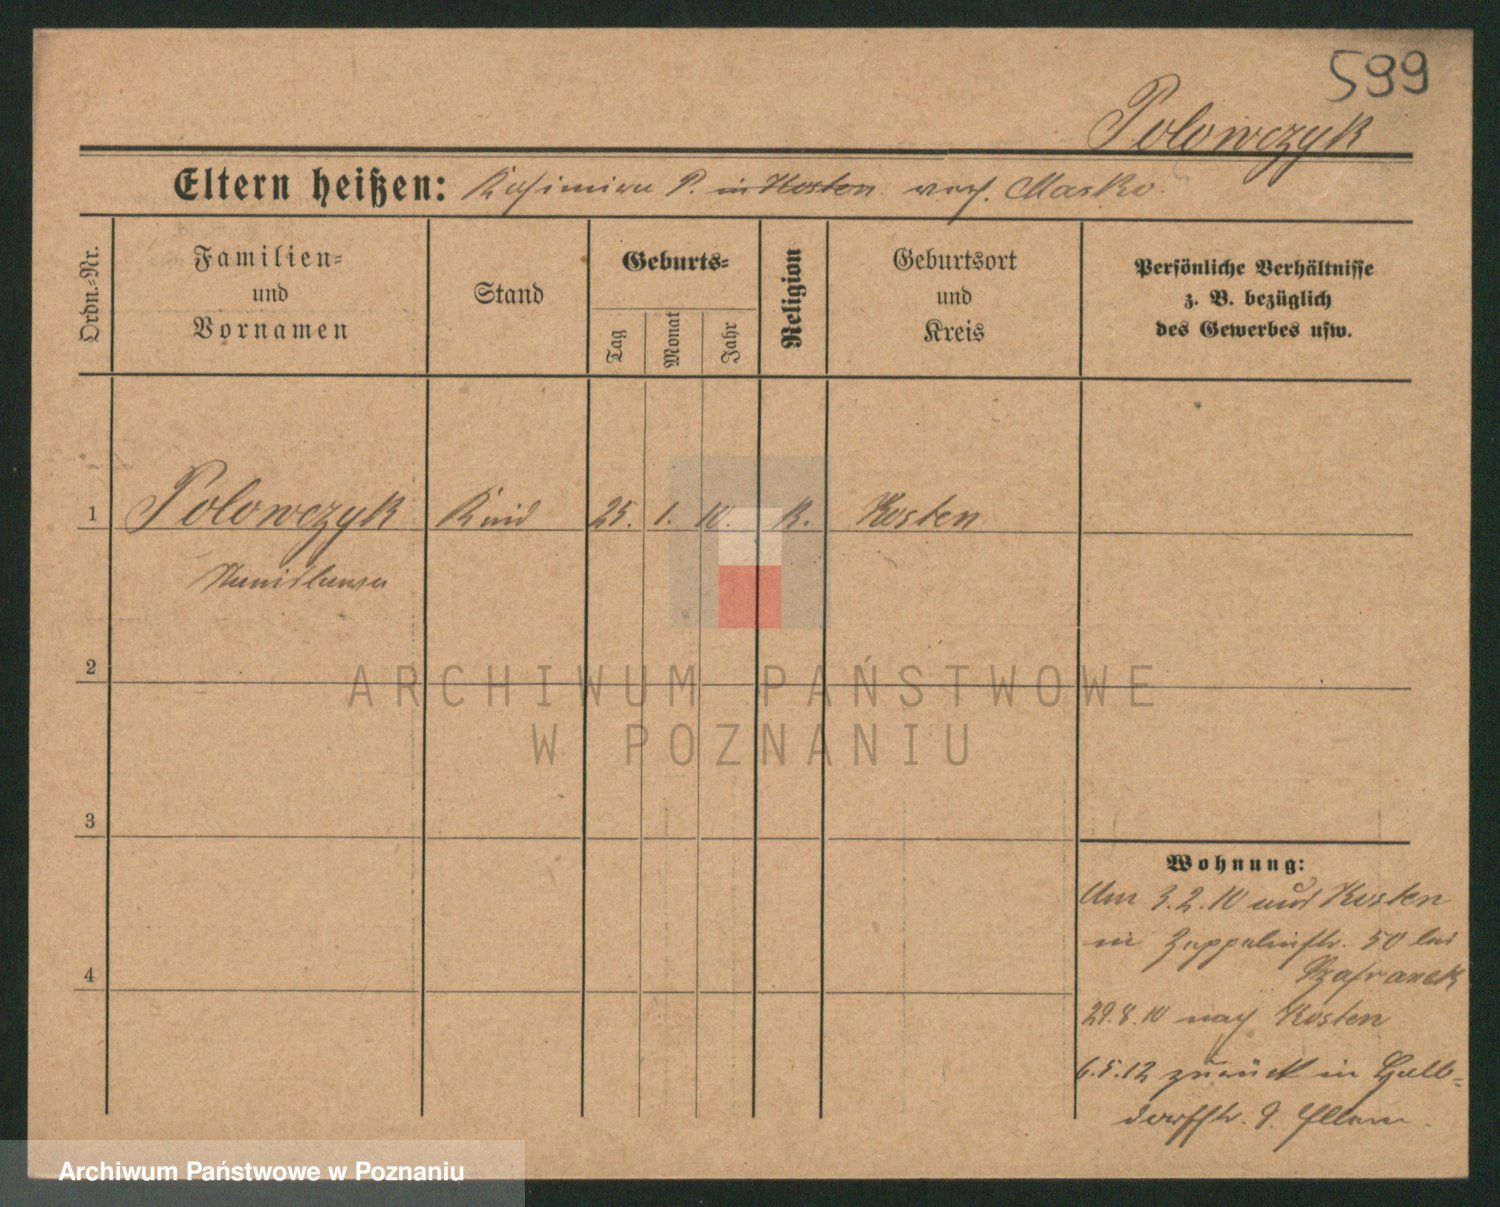 599
Polowczyk
Eltern heißen: Kasimira P. in Kosten verh. Masko
Ordn.=Nr.
Familien=
und
Vornamen
Stand
Geburts=
Tag
Monat
Jahr
Religion
Geburtsort
und
Kreis
Persönliche Verhältnisse
z. B. bezüglich
des Gewerbes usw.
1 Polowczyk Kind 25. 1. 10. K. Kosten
Stanislawa
2
ARCHIWUM PAŃSTWOWE
W POZNANIU
3
4
Wohnung:
Am 3.2.10 aus Kosten
in Zeppelinstr. 50 bei
Szafranek
29.8.10 nach Kosten
6.5.12 zurück in
dorffstr. 9.
Archiwum Państwowe w Poznaniu